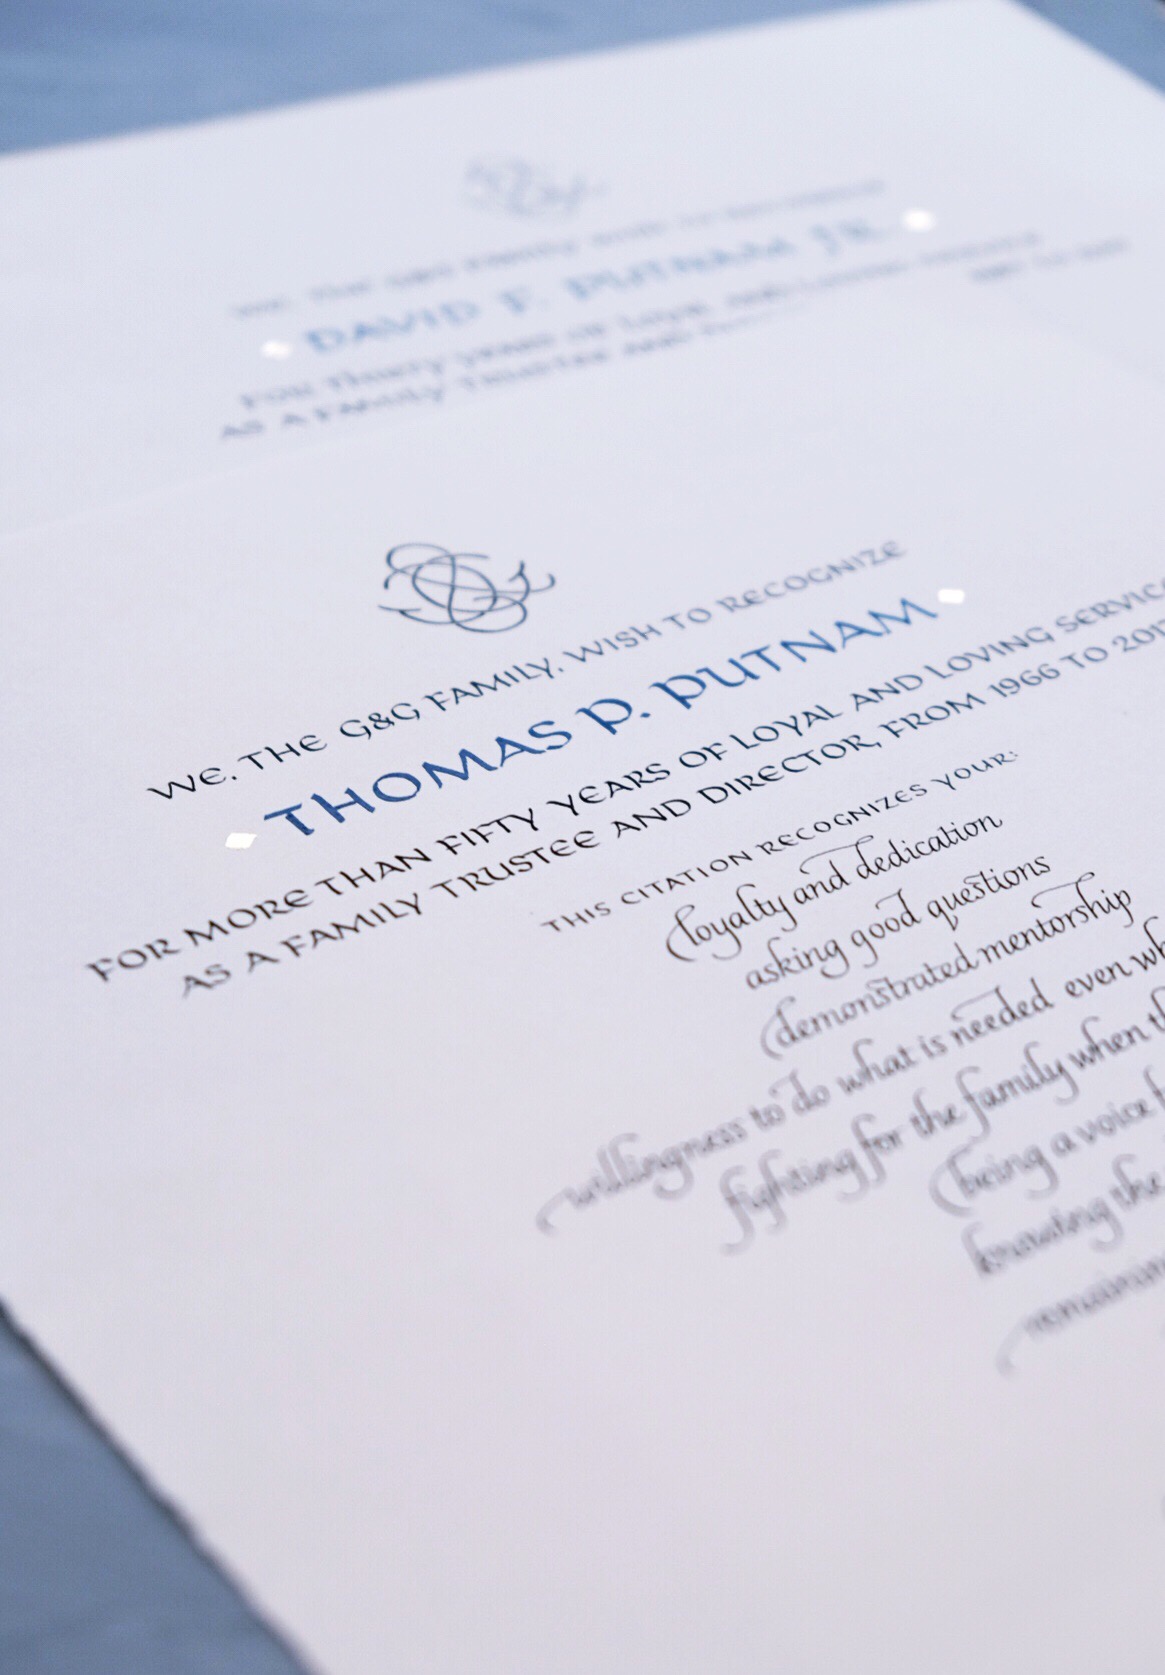 DAVID F. PUTNAM JR.
FOR THIRTY YEARS OF LOYAL AND
AS A FAMILY TRUSTEE AND
WE, THE G&G FAMILY, WISH TO RECOGNIZE
THOMAS P. PUTNAM
FOR MORE THAN FIFTY YEARS OF LOYAL AND LOVING SERVIC
AS A FAMILY TRUSTEE AND DIRECTOR, FROM 1966 TO
THIS CITATION RECOGNIZES YOUR:
loyalty and dedication
asking good questions
demonstrated mentorship
willingness to do what is needed even wh
fighting for the family when
being a voice
knowing the
remaining